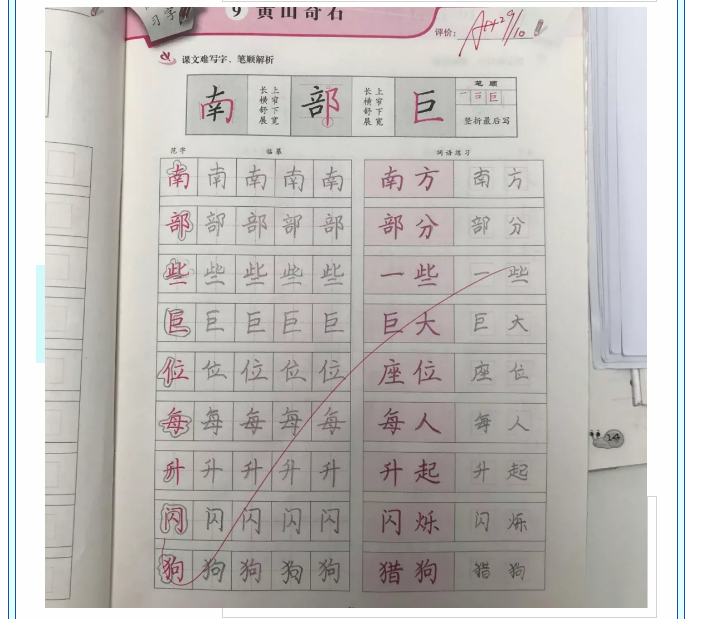 习字
9 黄山奇石
评价: A++ 29/10
课文难写字、笔顺解析
南 长横舒展 上窄下宽 部 长横舒展 上窄下宽 巨 笔顺
竖折最后写
范字 临摹 词语练习
南 南 南 南 南 南方 南方
部 部 部 部 部 部分 部分
些 些 些 些 些 一些 一些
巨 巨 巨 巨 巨 巨大 巨大
位 位 位 位 位 座位 座位
每 每 每 每 每 每人 每人
升 升 升 升 升 升起 升起
闪 闪 闪 闪 闪 闪烁 闪烁
狗 狗 狗 狗 狗 猎狗 猎狗
14